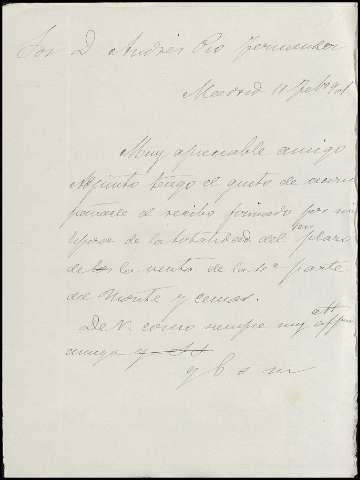 Sor D Andrés Pio Fernandez
Madrid 11 Feb
Muy apreciable amigo
Adjunto tengo el gusto de acom
pañarle el recibo firmado por mi
esposa de la totalidad del plazo
de la venta de la 10ª parte
del Monte y cenas.
De V. como siempre muy att
amigo
q b s m